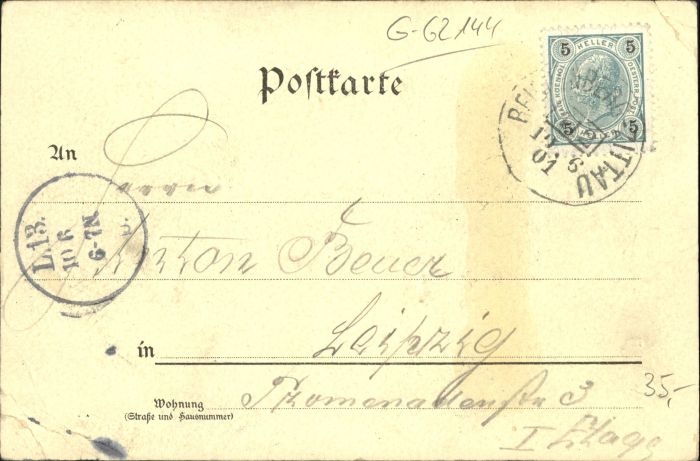 G-62144
Postkarte
5 HELLER 5
5 5
REI ITTAU
10 6
01
An
Herrn
L.13.
10 6
6-7N
Anton Beuer
in Leipzig
35,-
Wohnung
(Straße und Hausnummer)
Promenadenstr 3
I Etage